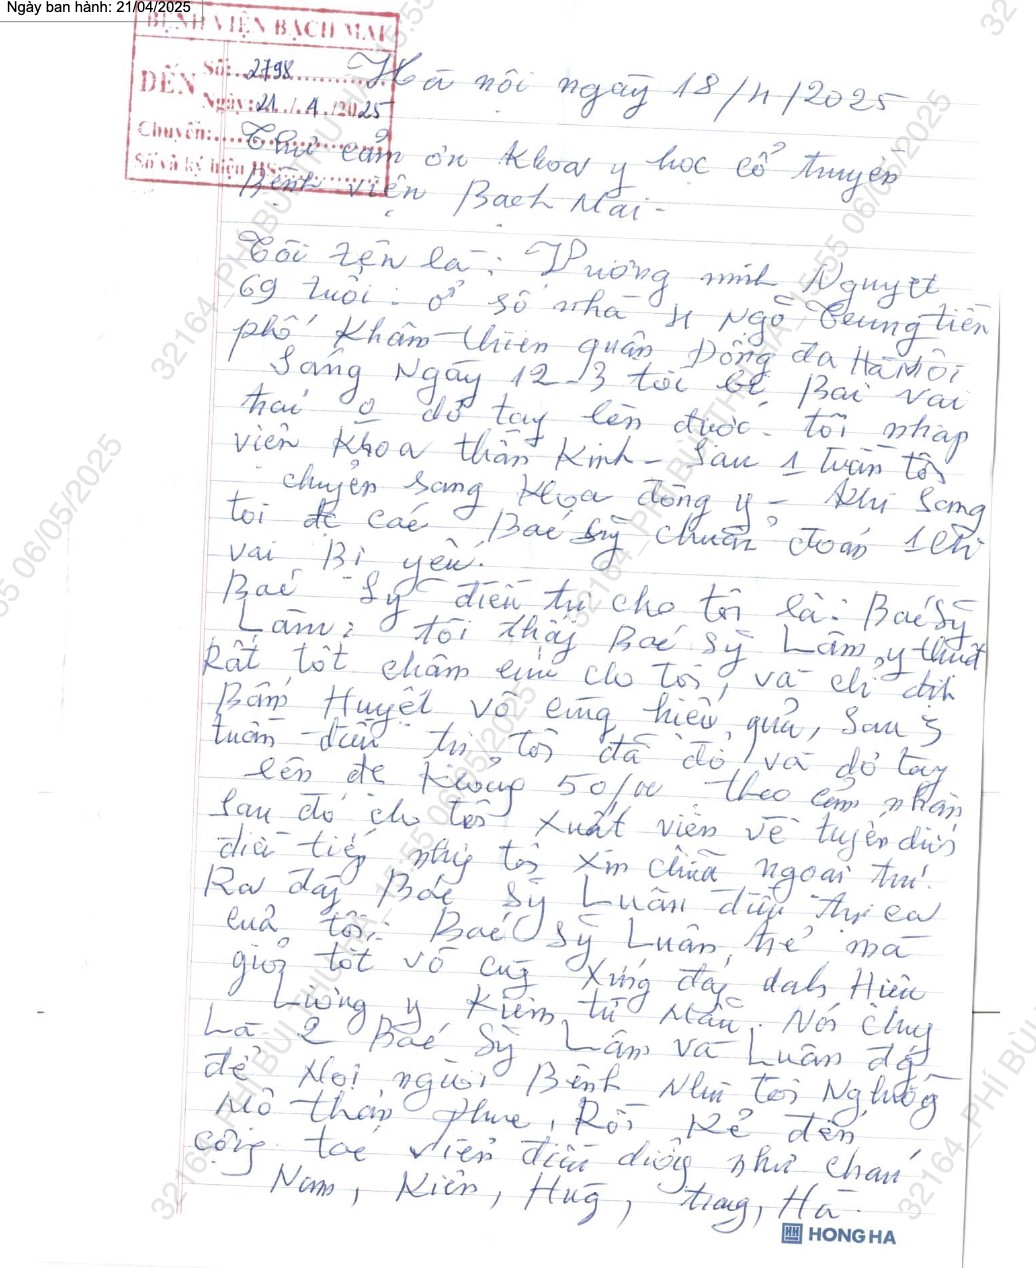 Ngày ban hành: 21/04/2025
BỆNH VIỆN BẠCH MAI
ĐẾN
Số: 2798
Ngày: 21/4/2025
Chuyển:
Số và ký hiệu HS:
Hà nôi ngày 18/4/2025
Thư cảm ơn Khoa y học cổ truyền
Bệnh viện Bach Mai-
Tôi tên là: Vương minh Nguyệt
69 tuổi: ở số nhà 4 Ngõ Trung tiên
phố Khâm-thiên quận Đống đa Hà Nôi
Sáng Ngày 12-3 tôi bị Bai vai
trai 0 dơ tay lên được. tôi nhap
viên Khoa thần Kinh- Sau 1 tuần tôi
chuyển sang Khoa đông y- Khi sang
tôi đc các Bác sỹ chuẩn đoán 1 chi
vai Bi yếu.
Bác sỹ điều tri cho tôi là: Bác sỹ
Lâm: tôi thấy Bác sỹ Lâm, y thuật
Rất tốt châm cứu cho tôi, và chỉ định
Bấm Huyệt vô cùng hiệu quả, sau 3
tuần điều tri tôi đã đỡ và dơ tay
lên đc Khoảng 50/00 theo cảm nhân
Sau đó cho tôi xuất viên về tuyến dưới
điều tiếp nhưg tôi xin chữa ngoai trú.
Ra đây Bác sỹ Luân điều tri ca
cuả tôi. Bác sỹ Luân, trẻ mà
giỏi tốt vô cùg xứng đág danh Hiêu
Lương y Kiêm từ Mẫu. Nói chug
Là 2 Bác sỹ Lâm và Luân đág
để Mọi người Bênh Như tôi Ngưỡng
Mô thán phuc, Rồi Kể đến
công tác viên điều dưỡg như cháu
Nam, Kiên, Hùg, trag, Hà.
HH HONG HA
32164_PHÍ BÙI THU HÀ_15:55 06/05/2025